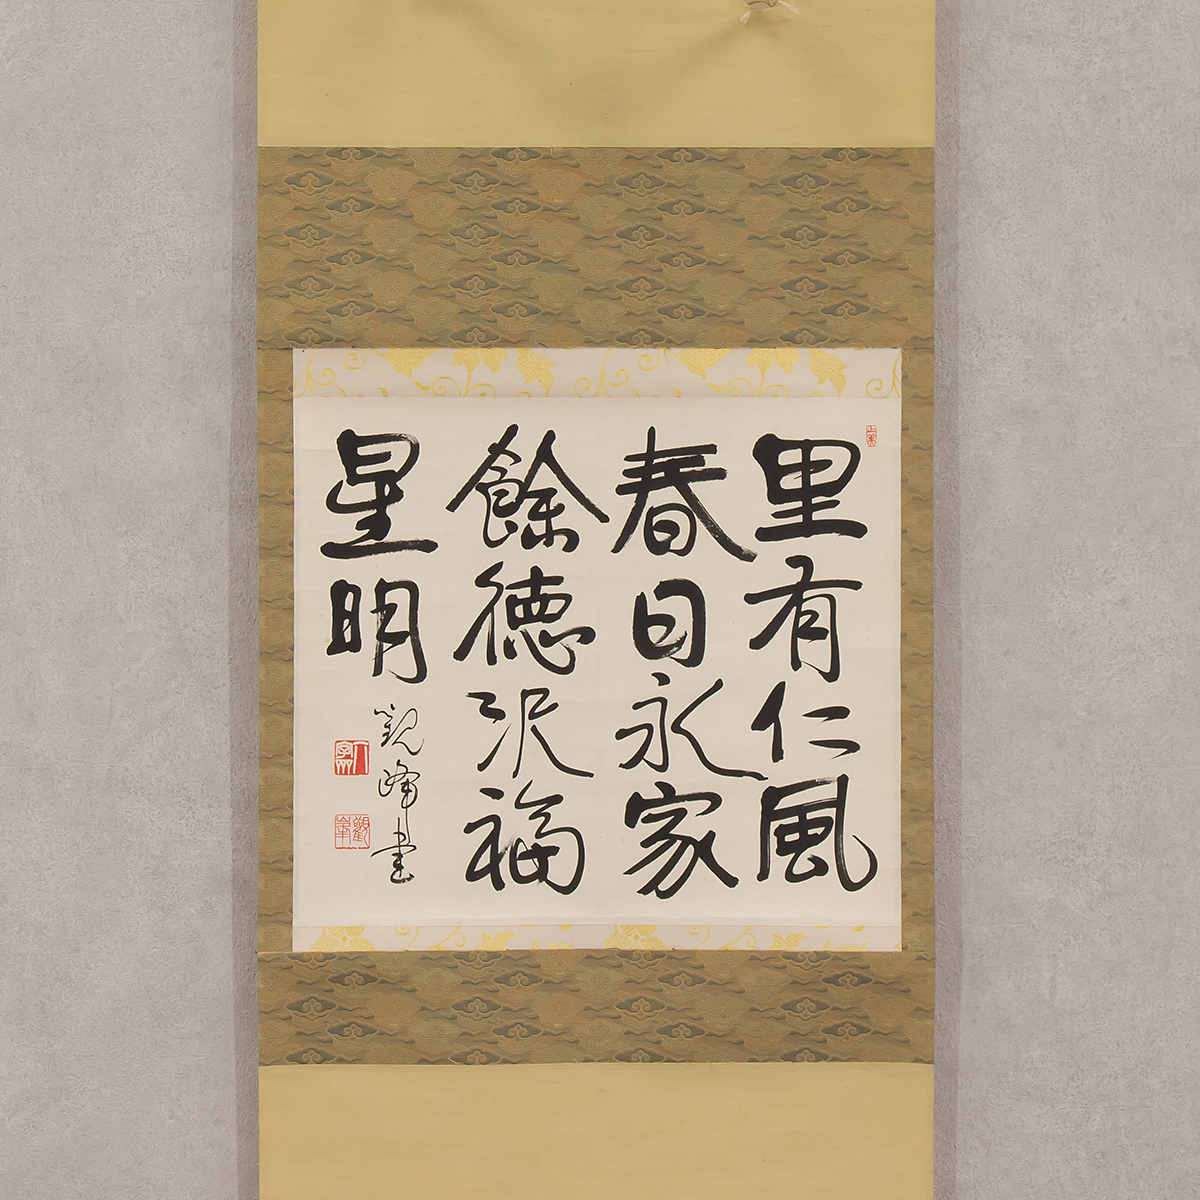 里有仁風
春日永家
餘徳沢福
星明
観峰書